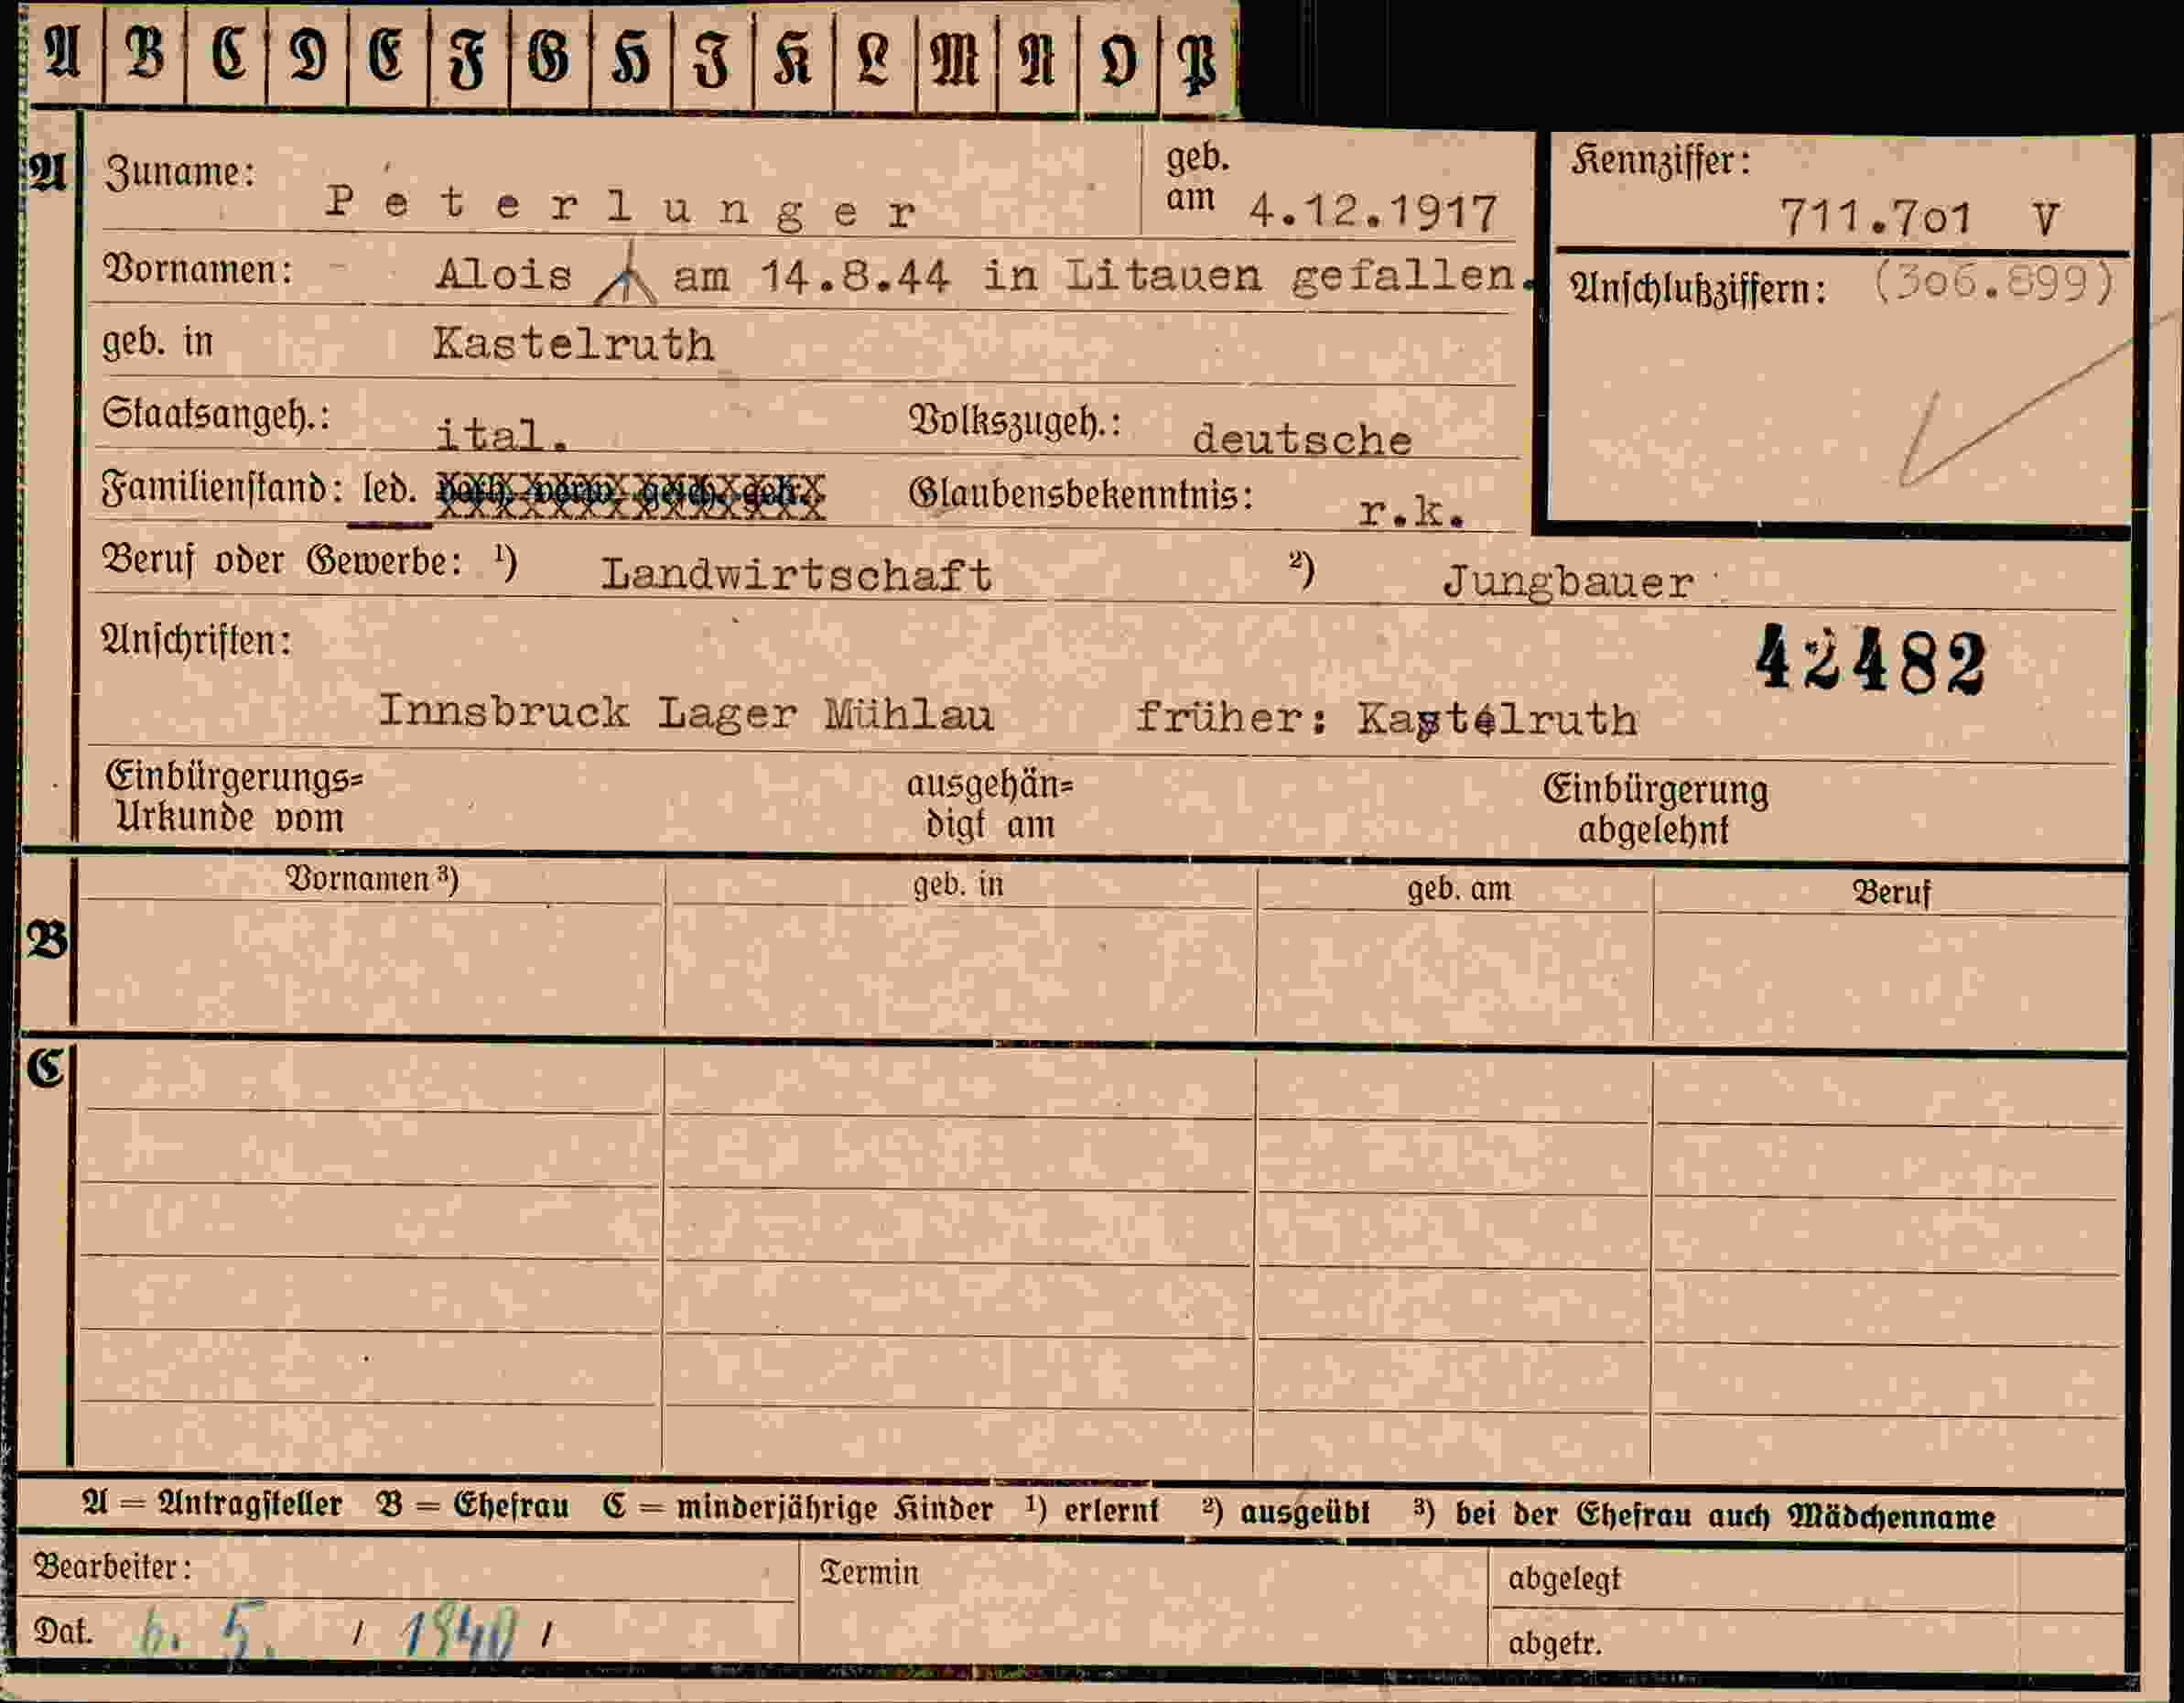 A B C D E F G H I K L M N O P
A Zuname: Peterlunger geb. am 4.12.1917 Kennziffer: 711.7o1 V
Vornamen: Alois am 14.8.44 in Litauen gefallen. Anschlußziffern: (3o6.899)
geb. in Kastelruth
Staatsangeh.: ital. Volkszugeh.: deutsche
Familienstand: led. Glaubensbekenntnis: r.k.
Beruf oder Gewerbe: ¹) Landwirtschaft ²) Jungbauer
Anschriften: 42482
Innsbruck Lager Mühlau früher: Kastelruth
Einbürgerungs= ausgehän= Einbürgerung
Urkunde vom digt am abgelehnt
Vornamen ³) geb. in geb. am Beruf
B
C
A = Antragsteller B = Ehefrau C = minderjährige Kinder ¹) erlernt ²) ausgeübt ³) bei der Ehefrau auch Mädchenname
Bearbeiter: Termin abgelegt
Dat. 6. 5. / 1940 / abgetr.